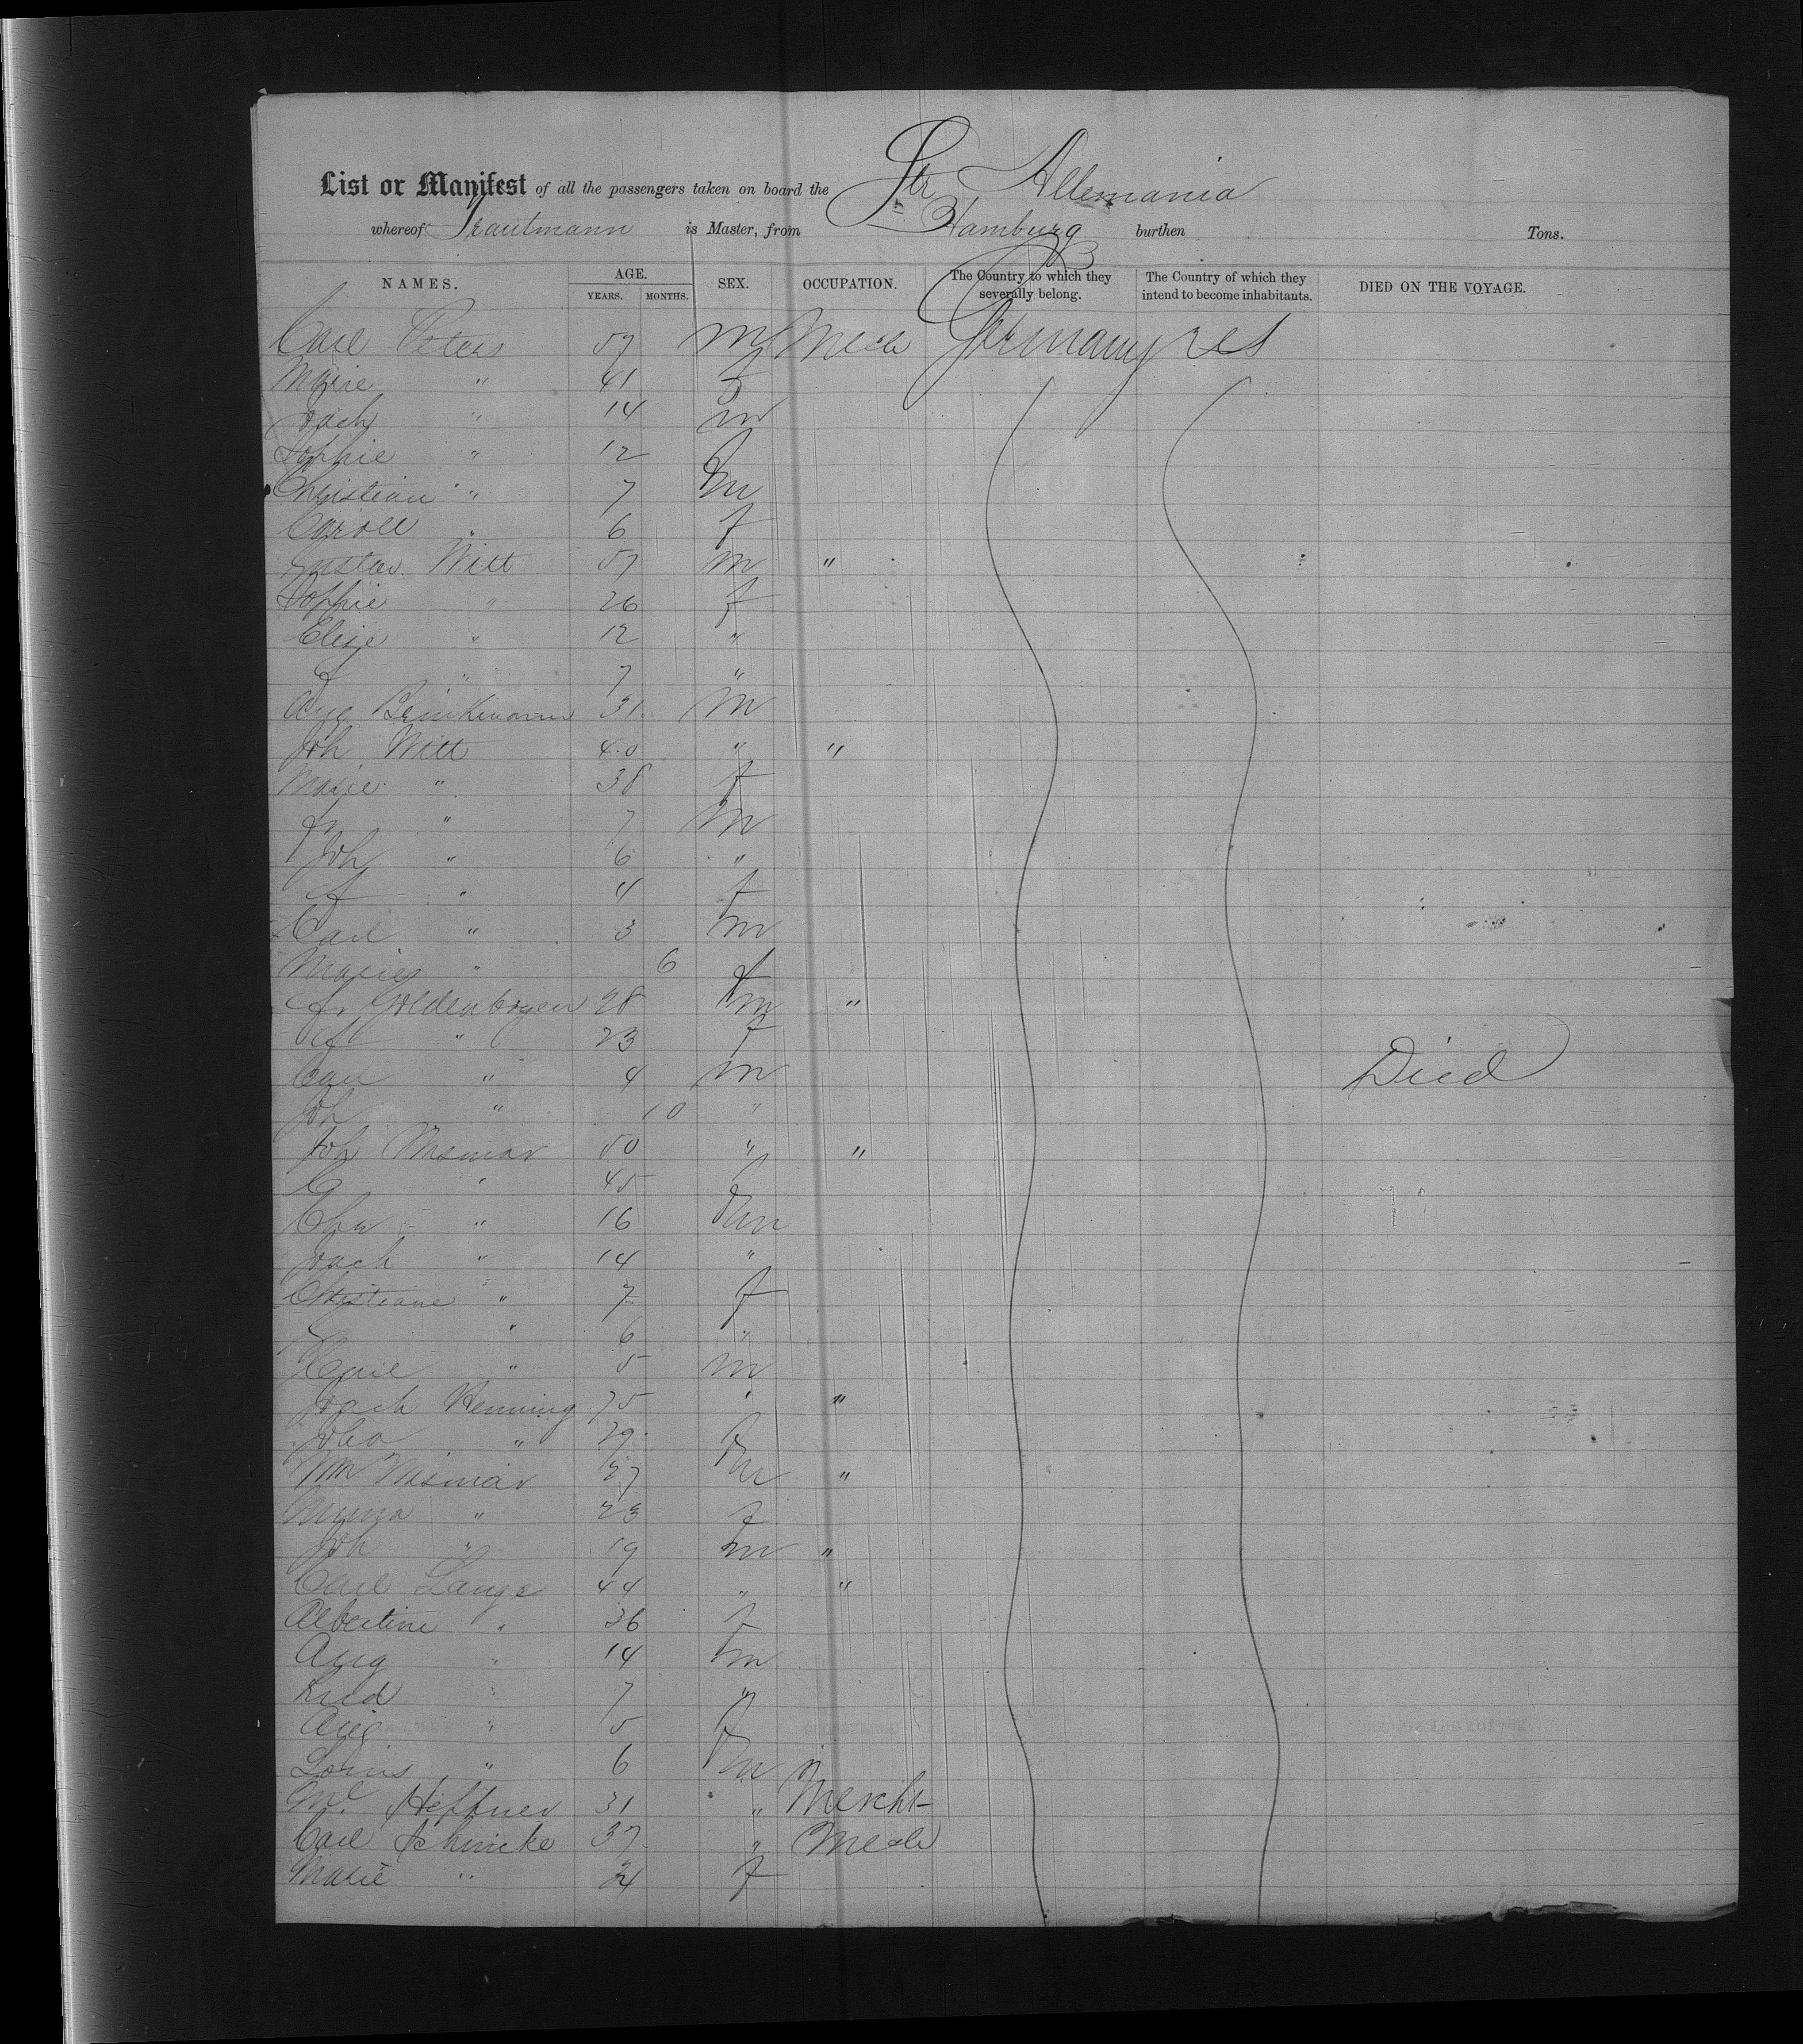 List or Manifest of all the passengers taken on board the Str Allemania
whereof Trautmann is Master, from Hamburg burthen Tons.
NAMES. AGE. YEARS. MONTHS. SEX. OCCUPATION. The Country to which they severally belong. The Country of which they intend to become inhabitants. DIED ON THE VOYAGE.
Carl Peters 57 m Mech Germany
Marie " 41 f
Joach " 14 m
Sophie " 12 f
Christian " 7 m
6 f
Gustav Witt 57 m "
Sophie " 26 f
Elise " 12 "
" 7 "
Aug Brinkmann 31 m
Joh Witt 40 " "
Marie " 38 f
Fr " 7 m
Joh " 6 "
" 4 f
Carl " 3 m
Marie " 6 f
Fr Goldenbogen 28 m "
" 23 f
Carl " 4 m Died
Joh " 10 "
Joh Wismar 50 " "
C " 45 f
Chr " 16 m
Joach " 14 "
Christiane " 7 f
" 6 "
Carl " 5 m
Joach Henning 75 " "
" 29 f
Wm Wismar 27 m "
Minna " 23 f
Joh " 19 m "
Carl Lange 44 " "
Albertine " 36 f
Aug " 14 m
" 7 "
Aug " 5 f
Louis " 6 m
Heffner 31 " Mercht
Carl Schmicke 37 " Mech
Marie " 34 f